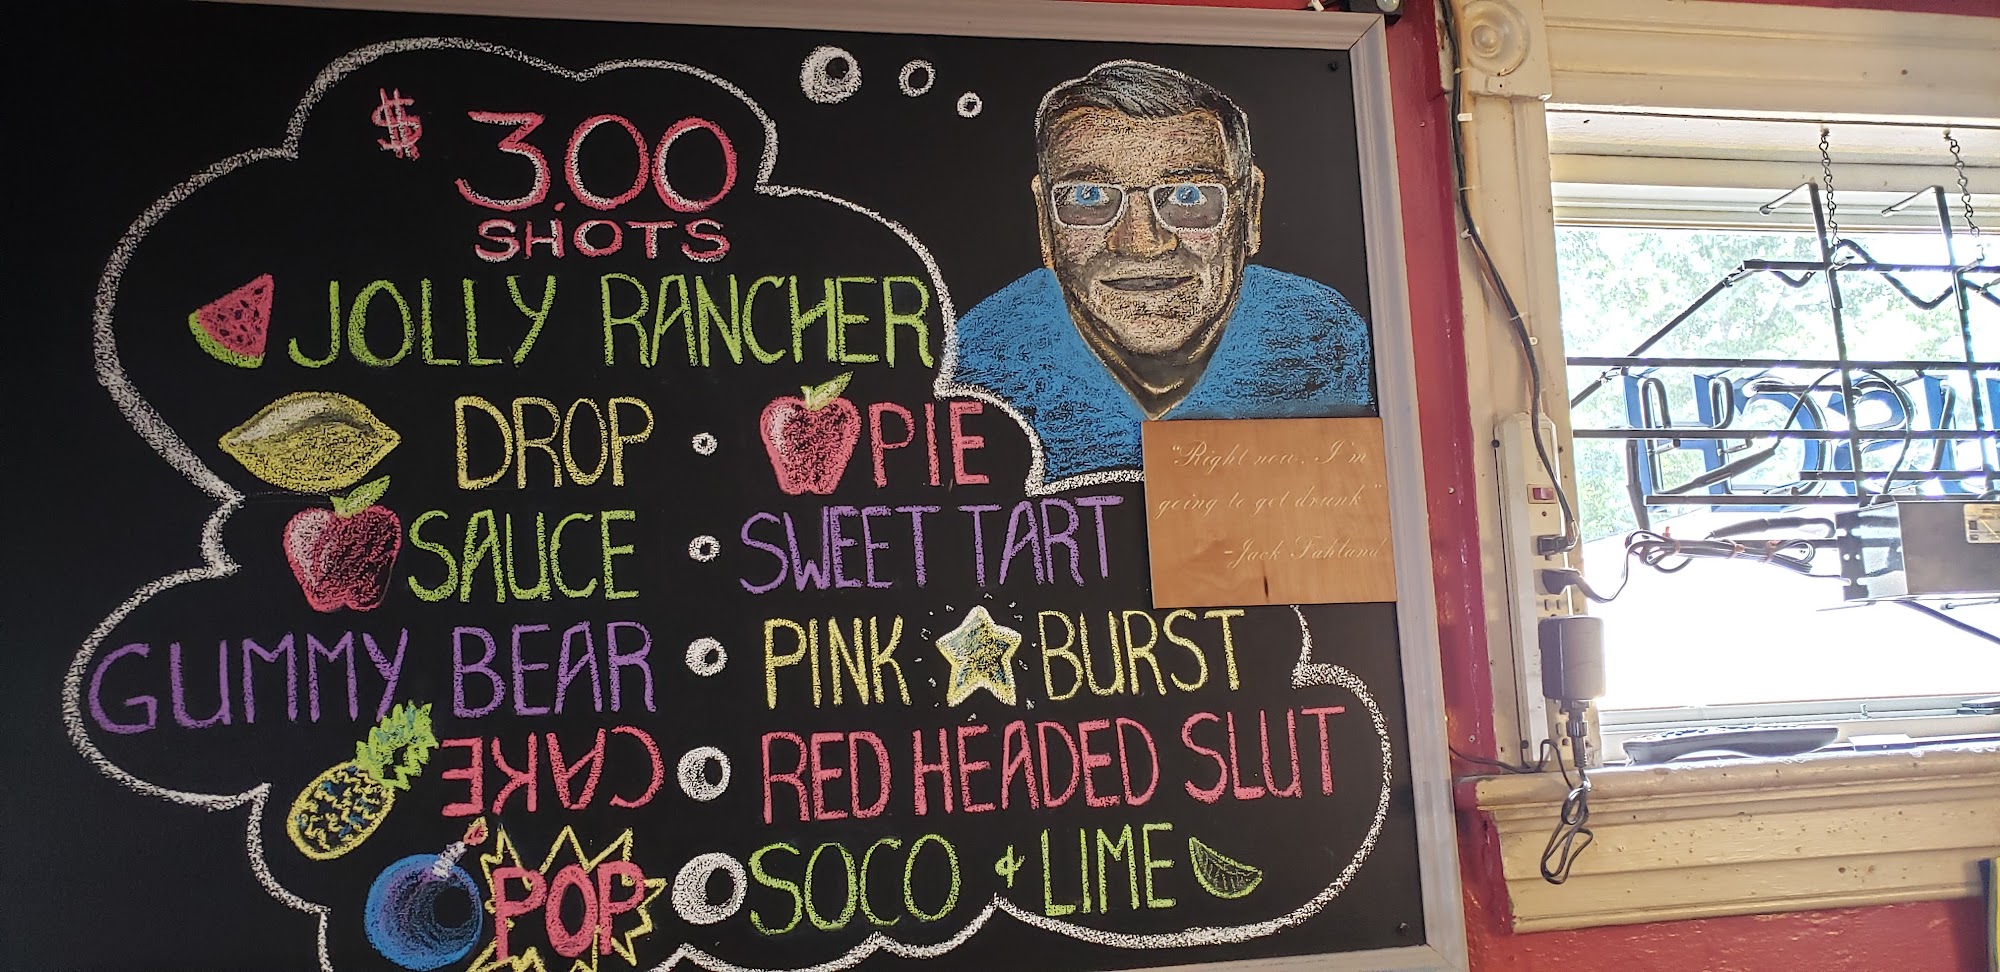 $ 3.00
SHOTS
JOLLY RANCHER
DROP • PIE
SAUCE • SWEET TART
GUMMY BEAR • PINK BURST
CAKE • RED HEADED SLUT
POP SOCO & LIME
"Right now, I'm
going to get drunk"
-Jack Fahland